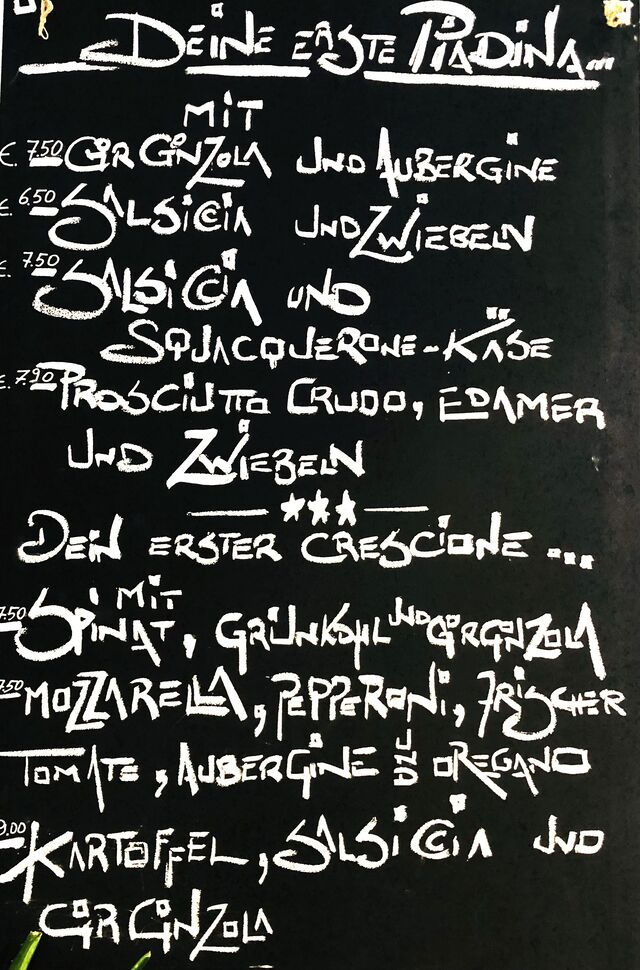 DEINE ERSTE PIADINA...
MIT
€. 7.50 GORGONZOLA UND AUBERGINE
€. 6.50 SALSICCIA UND ZWIEBELN
€. 7.50 SALSICCIA UND
SQUACQUERONE-KÄSE
€. 7.90 PROSCIUTTO CRUDO, EDAMER
UND ZWIEBELN
DEIN ERSTER CRESCIONE ...
MIT
7.50 SPINAT, GRÜNKOHL UND GORGONZOLA
7.50 MOZZARELLA, PEPPERONI, FRISCHER
TOMATE, AUBERGINE UND OREGANO
9.00 KARTOFFEL, SALSICCIA UND
GORGONZOLA